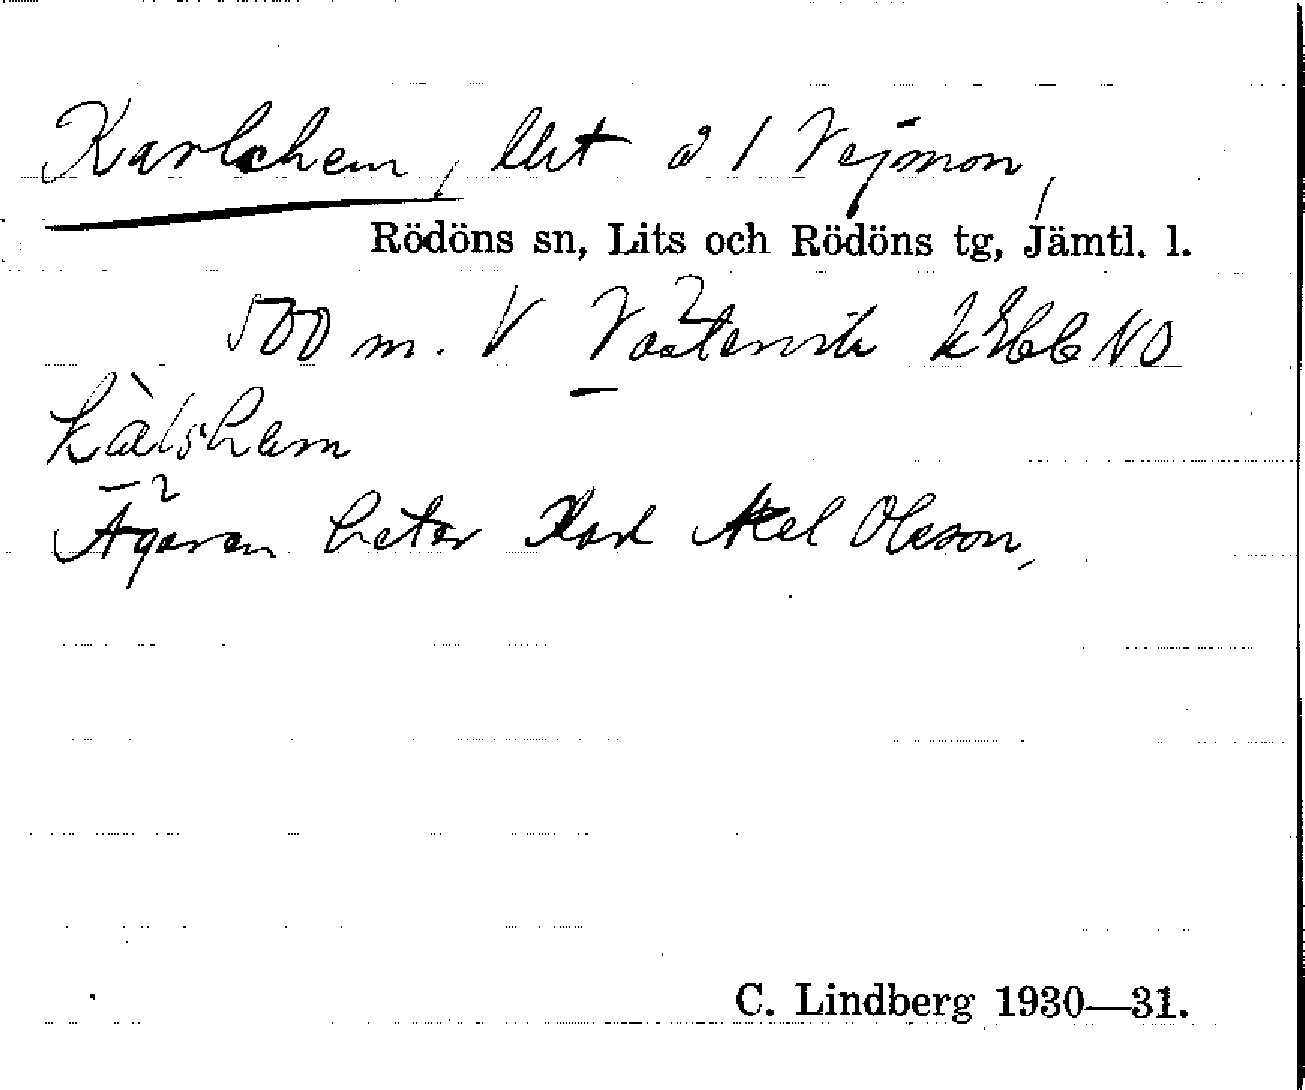 Karlshem, lht å 1 Vejmon,
Rödöns sn, Lits och Rödöns tg, Jämtl. l.
500 m. V Västervik NO
kàlshem
Ägaren heter Karl Axel Olsson,
C. Lindberg 1930—31.